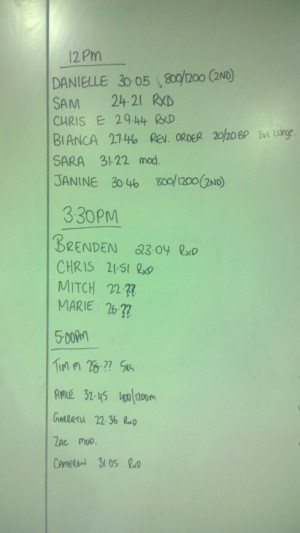 12PM
DANIELLE 30.05 800/1200 (2ND)
SAM 24.21 RXD
CHRIS E 29.44 RXD
BIANCA 27.46 REV. ORDER 20/20 BP Bw Lunge.
SARA 31.22 mod.
JANINE 30.46 800/1200 (2ND)
3:30PM
BRENDEN 23.04 RxD
CHRIS 21.51 RxD
MITCH 22.??
MARIE 26.??
5:00PM
TIM M 28.??
32.45 400/200m
GARRETH 22.36 RxD
ZAC MOD.
CAMERON 31.05 RxD